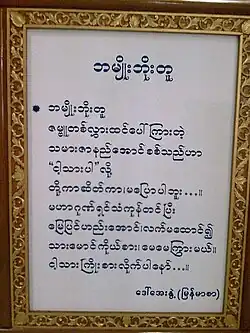 ဘမျိုးဘိုးတူ
* ဘမျိုးဘိုးတူ
ဇမ္ဗူတစ်လွှားထင်ပေါ်ကြားတဲ့
သမားဇာနည်အောင်စစ်သည်ဟာ
“ငါ့သားပါ”လို့
တို့ကာဆိတ်ကာ၊မပြောပါဘူး...။
မဟာဂုဏ်ရှင်သံကုန်တင်ပြီး
မြေပြင်ဟည်းအောင်၊လက်မထောင်၍
သားမောင်ကိုယ်စား၊မေမေကြွားမယ်။
ငါ့သားကြိုးစားလိုက်ပါနော်...။
ဒေါ်အေးနွဲ့(မြန်မာစာ)